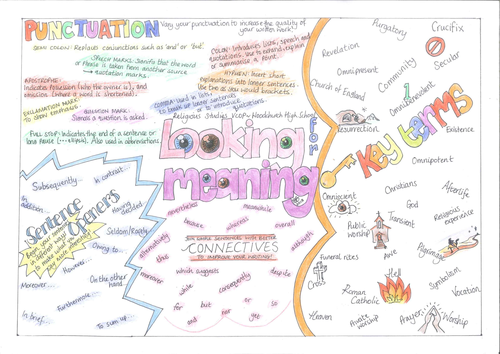 PUNCTUATION
Vary your punctuation to increase the quality of
your written work!
SEMI COLON: Replaces conjunctions such as 'and' or 'but'.
COLON: Introduces lists, speech and
quotations. Use to extend, explain
or summarise a point.
SPEECH MARKS: Signify that the word
or phrase is taken from another source
→ quotation marks.
HYPHEN: Insert short
explanations into longer sentences.
Use two as you would brackets.
APOSTROPHE:
Indicates possession (who the owner is), and
omission (where a word is shortened).
COMMA: used in lists,
to break up longer sentences
or to introduce
quotations.
EXCLAMATION MARK:
to show emphasis.
QUESTION MARK:
Signals a question is asked.
FULL STOP: Indicates the end of a sentence or
long pause (... ellipsis). Also used in abbreviations.
Religious Studies
Woodchurch High School
Looking
for
meaning
Sentence
Openers
Begin your sentences
in different ways
to make what you
say more interesting
Subsequently...
In contrast...
In
addition...
Having
decided
Seldom/Rarely
Owing to...
However...
Moreover...
On the other
hand...
Furthermore...
In brief...
To sum up...
nevertheless
meanwhile
because
whereas
overall
alternatively
although
Link words/sentences with better
CONNECTIVES
TO IMPROVE YOUR WRITING!
moreover
which suggests
despite
while
consequently
for
but
or
so
and
nor
yet
Key terms
Purgatory
Crucifix
Revelation
Omnipresent
Community
Secular
Church of England
Omnibenevolent
Resurrection
Existence
Omnipotent
Omniscient
Christians
Afterlife
God
Public
worship
Transient
Religious
experience
Funeral rites
Awe
Pilgrimage
Cross
Hell
Symbolism
Roman
Catholic
Vocation
Heaven
Private
worship
Prayer
Worship